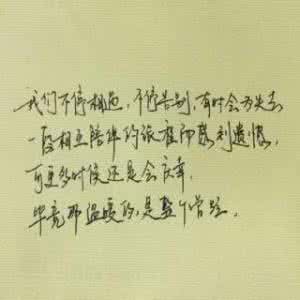 我们不停相遇,不停告别,有时会为失去
一段相互陪伴的旅程而感到遗憾,
可更多时候还是会庆幸,
毕竟那温暖的,是些个曾经.